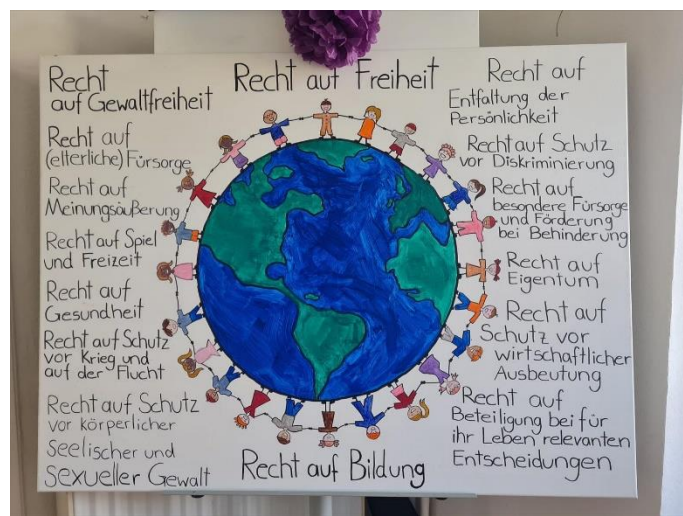 Recht
auf Gewaltfreiheit
Recht auf
(elterliche) Fürsorge
Recht auf
Meinungsäußerung
Recht auf Spiel
und Freizeit
Recht auf
Gesundheit
Recht auf Schutz
vor Krieg und
auf der Flucht
Recht auf Schutz
vor körperlicher
Seelischer und
sexueller Gewalt
Recht auf Freiheit
Recht auf Bildung
Recht auf
Entfaltung der
Persönlichkeit
Recht auf Schutz
vor Diskriminierung
Recht auf
besondere Fürsorge
und Förderung
bei Behinderung
Recht auf
Eigentum
Recht auf
Schutz vor
wirtschaftlicher
Ausbeutung
Recht auf
Beteiligung bei für
ihr Leben relevanten
Entscheidungen